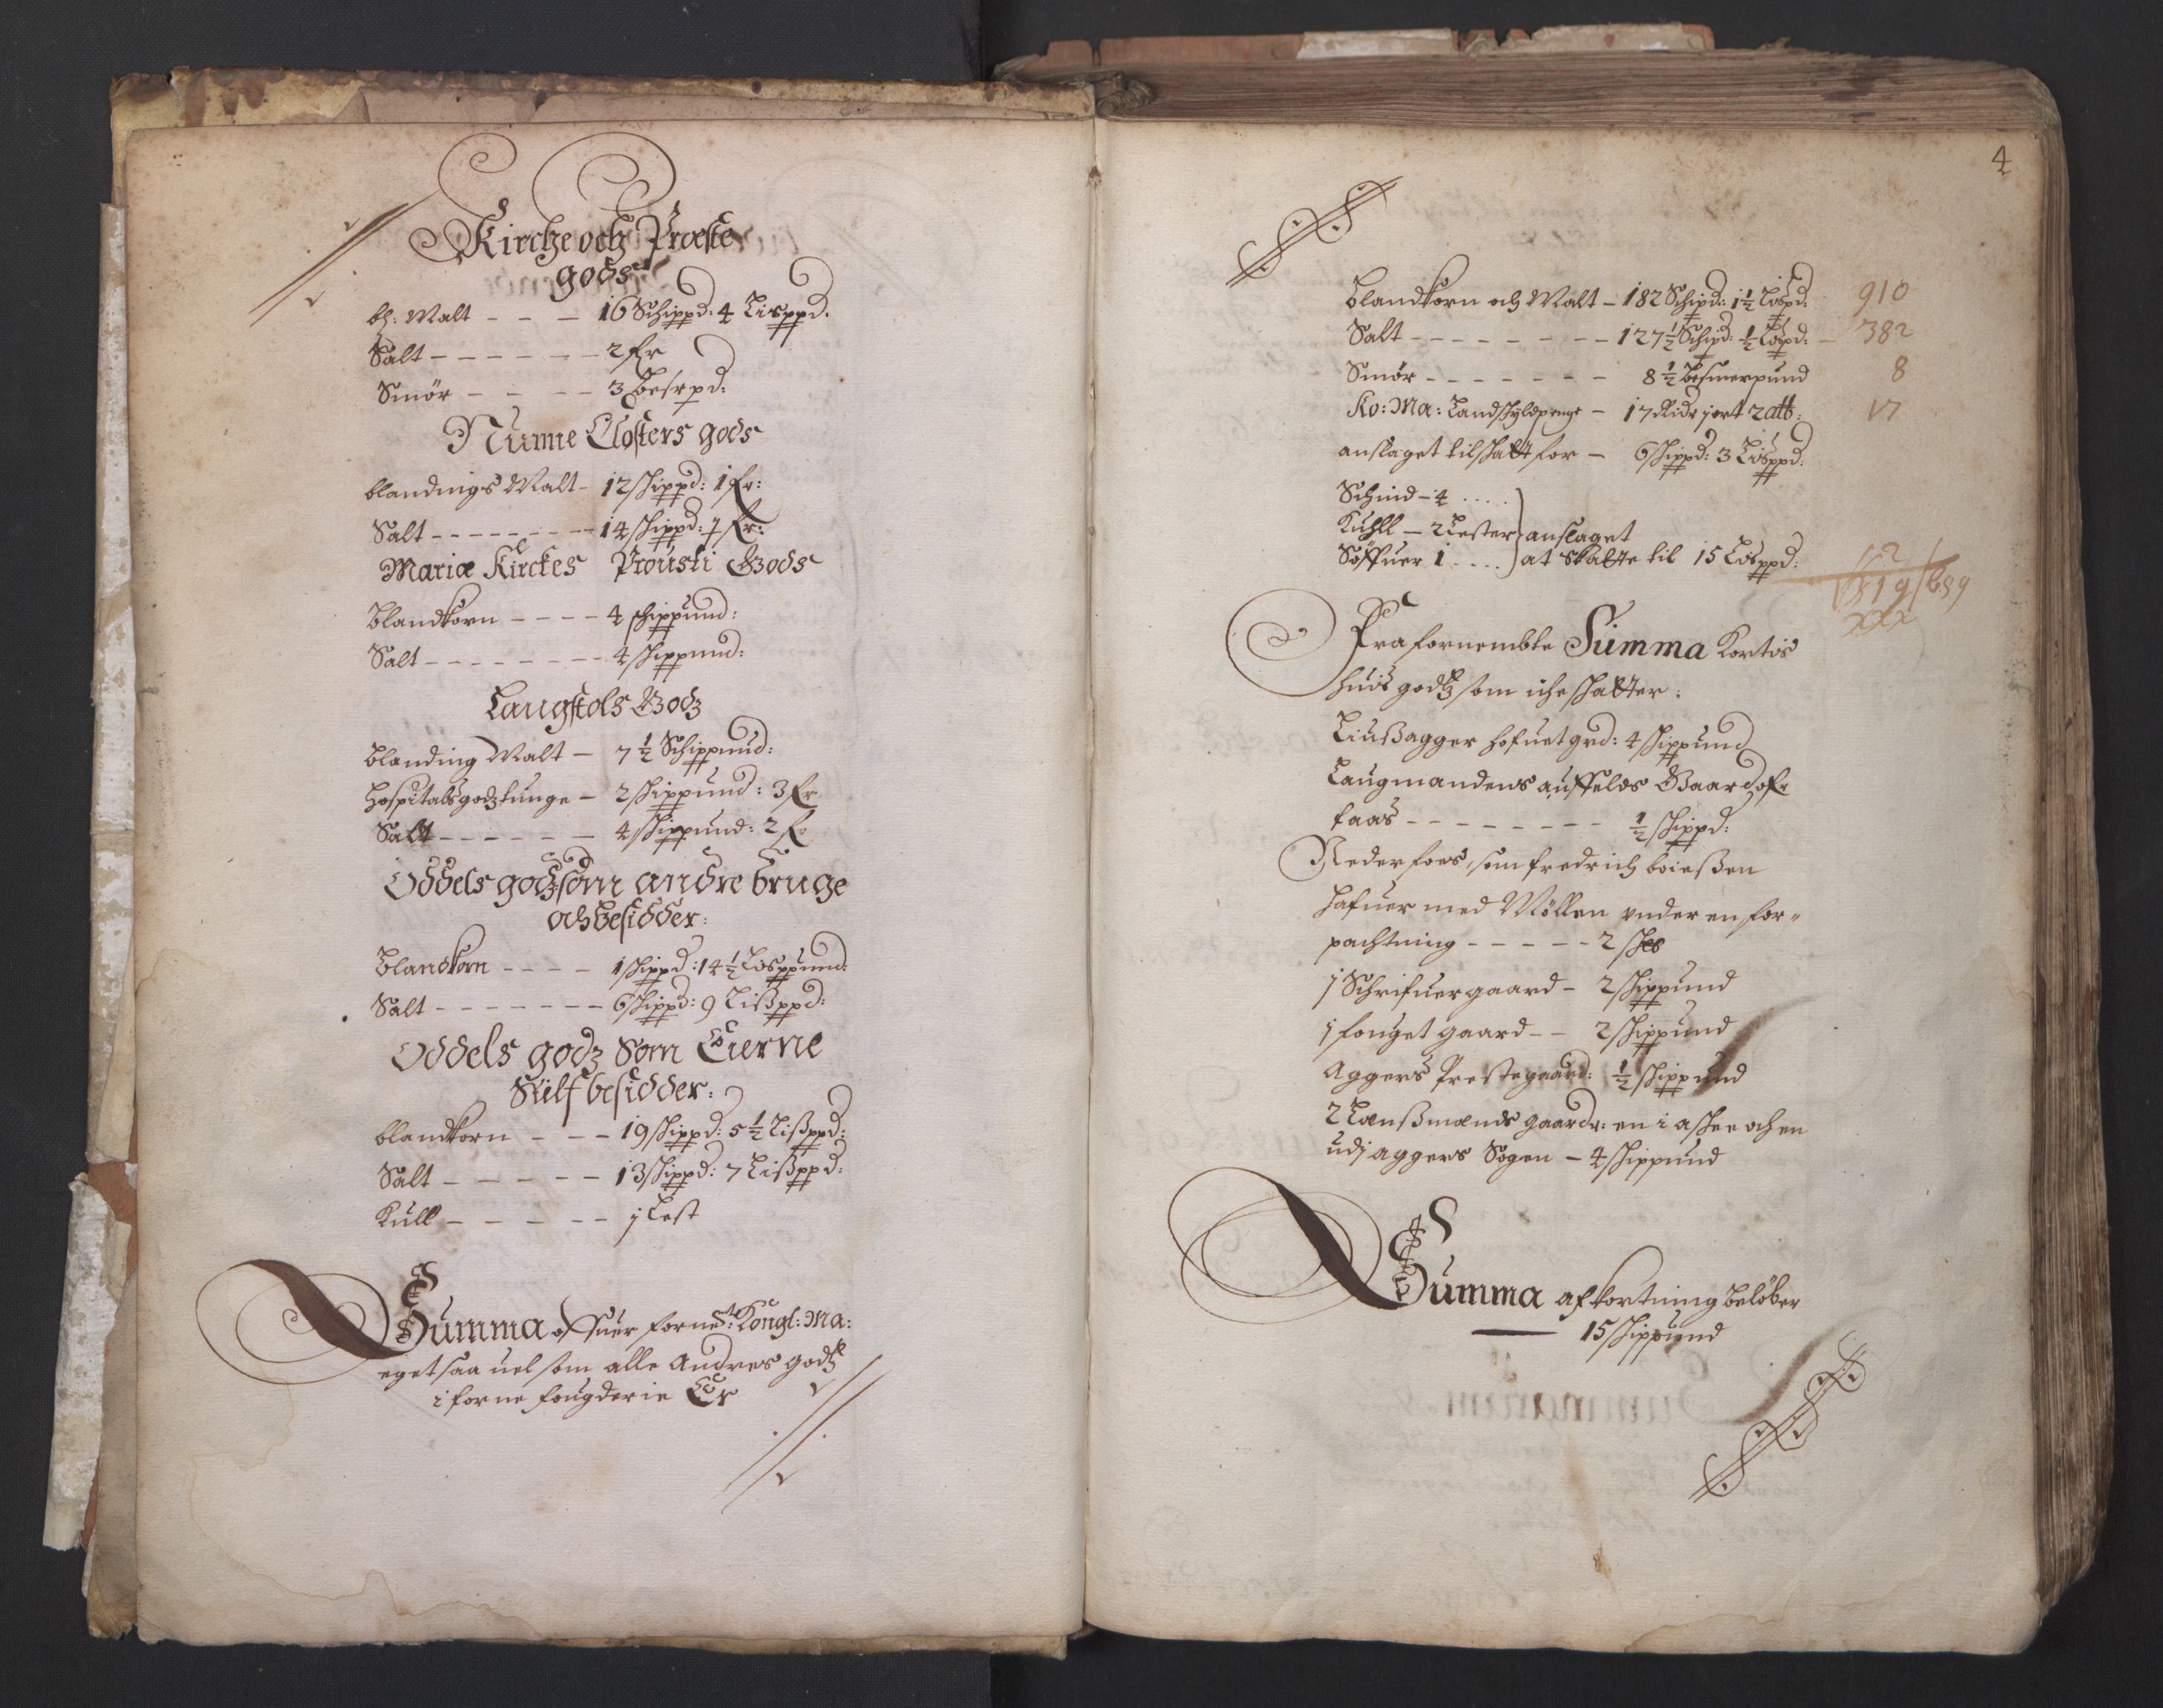 Kirche och Præste
gods
bl: Malt - - - 16 Schippd: 4 Lisppd.
Salt - - - - - - 2 fr
Smör - - - - 3 Besrpd:
Nunne Closters gods
blandings Malt - 12 skippd: 1 fr:
Salt - - - - - - - 14 skippd: 1 fr:
Mariæ Kirckes Prousti Gods
Blandkorn - - - - 4 schippund:
Salt - - - - - - - - 4 skippund:
Laugstols Godz
blanding Malt - 7 1/2 Schippund:
Hospitals godz tunge - 2 skippund: 3 fr
Salt - - - - - - 4 skippund: 2 fr
Oddels godz som andre bruge
och besidder:
Blandkorn - - - - 1 skippd: 14 1/2 Lisppund:
Salt - - - - - - - 6 skippd: 9 Lißppd:
Oddels godz Som Eierne
Sielf besidder:
blandkorn - - - 19 skippd: 5 1/2 Lißppd:
Salt - - - - - 13 skippd: 7 Lißppd:
Kull - - - - - j Lest
Summa offuer forne: Kongl: Ma:
eget saa uel som alle Andres godz
i forne fougderie Er
4
Blandkorn och Malt - 182 Schipd: 1 1/2 Lispd: 910
Salt - - - - - - - - 127 1/2 Schipd: 1/2 Lispd: - 382
Smör - - - - - - - 8 1/2 Besmerpund 8
Ko: Ma: Landschyldpenge - 17 Ridr jort 17
anslaget til skatt for - 6 skippd: 3 Lisppd:
Schind - 4 . . . . .
Kuhll - 2 Lester } anslaget
Söffuer 1 . . . . at skatte til 15 Lisppd:
Fra fornembte Summa Kortis
huis godtz som iche skatter:
Liußagger hofuet grd: 4 skippund
Laugmandens auffelds Gaard
faas - - - - - - - - 1/2 skippd:
Nederfoes, som fredrich boießen
hafuer med Möllen under en for-
pachtning - - - - - 2
j Schrifuer gaard - 2 skippund
j fouget gaard - - 2 skippund
Aggers Prestegaard: 1/2 skippund
2 Lænßmænds gaarde: en i Asker och en
udj Aggers Sogen - 4 skippund
Summa afkortning belöber
15 skippund